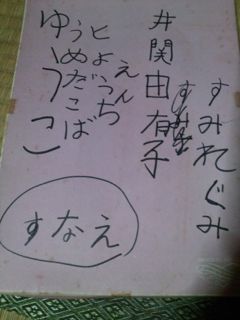 すみれぐみ
井関由有子
えん
とようち
うめだこば
ゆうこ
すなえ